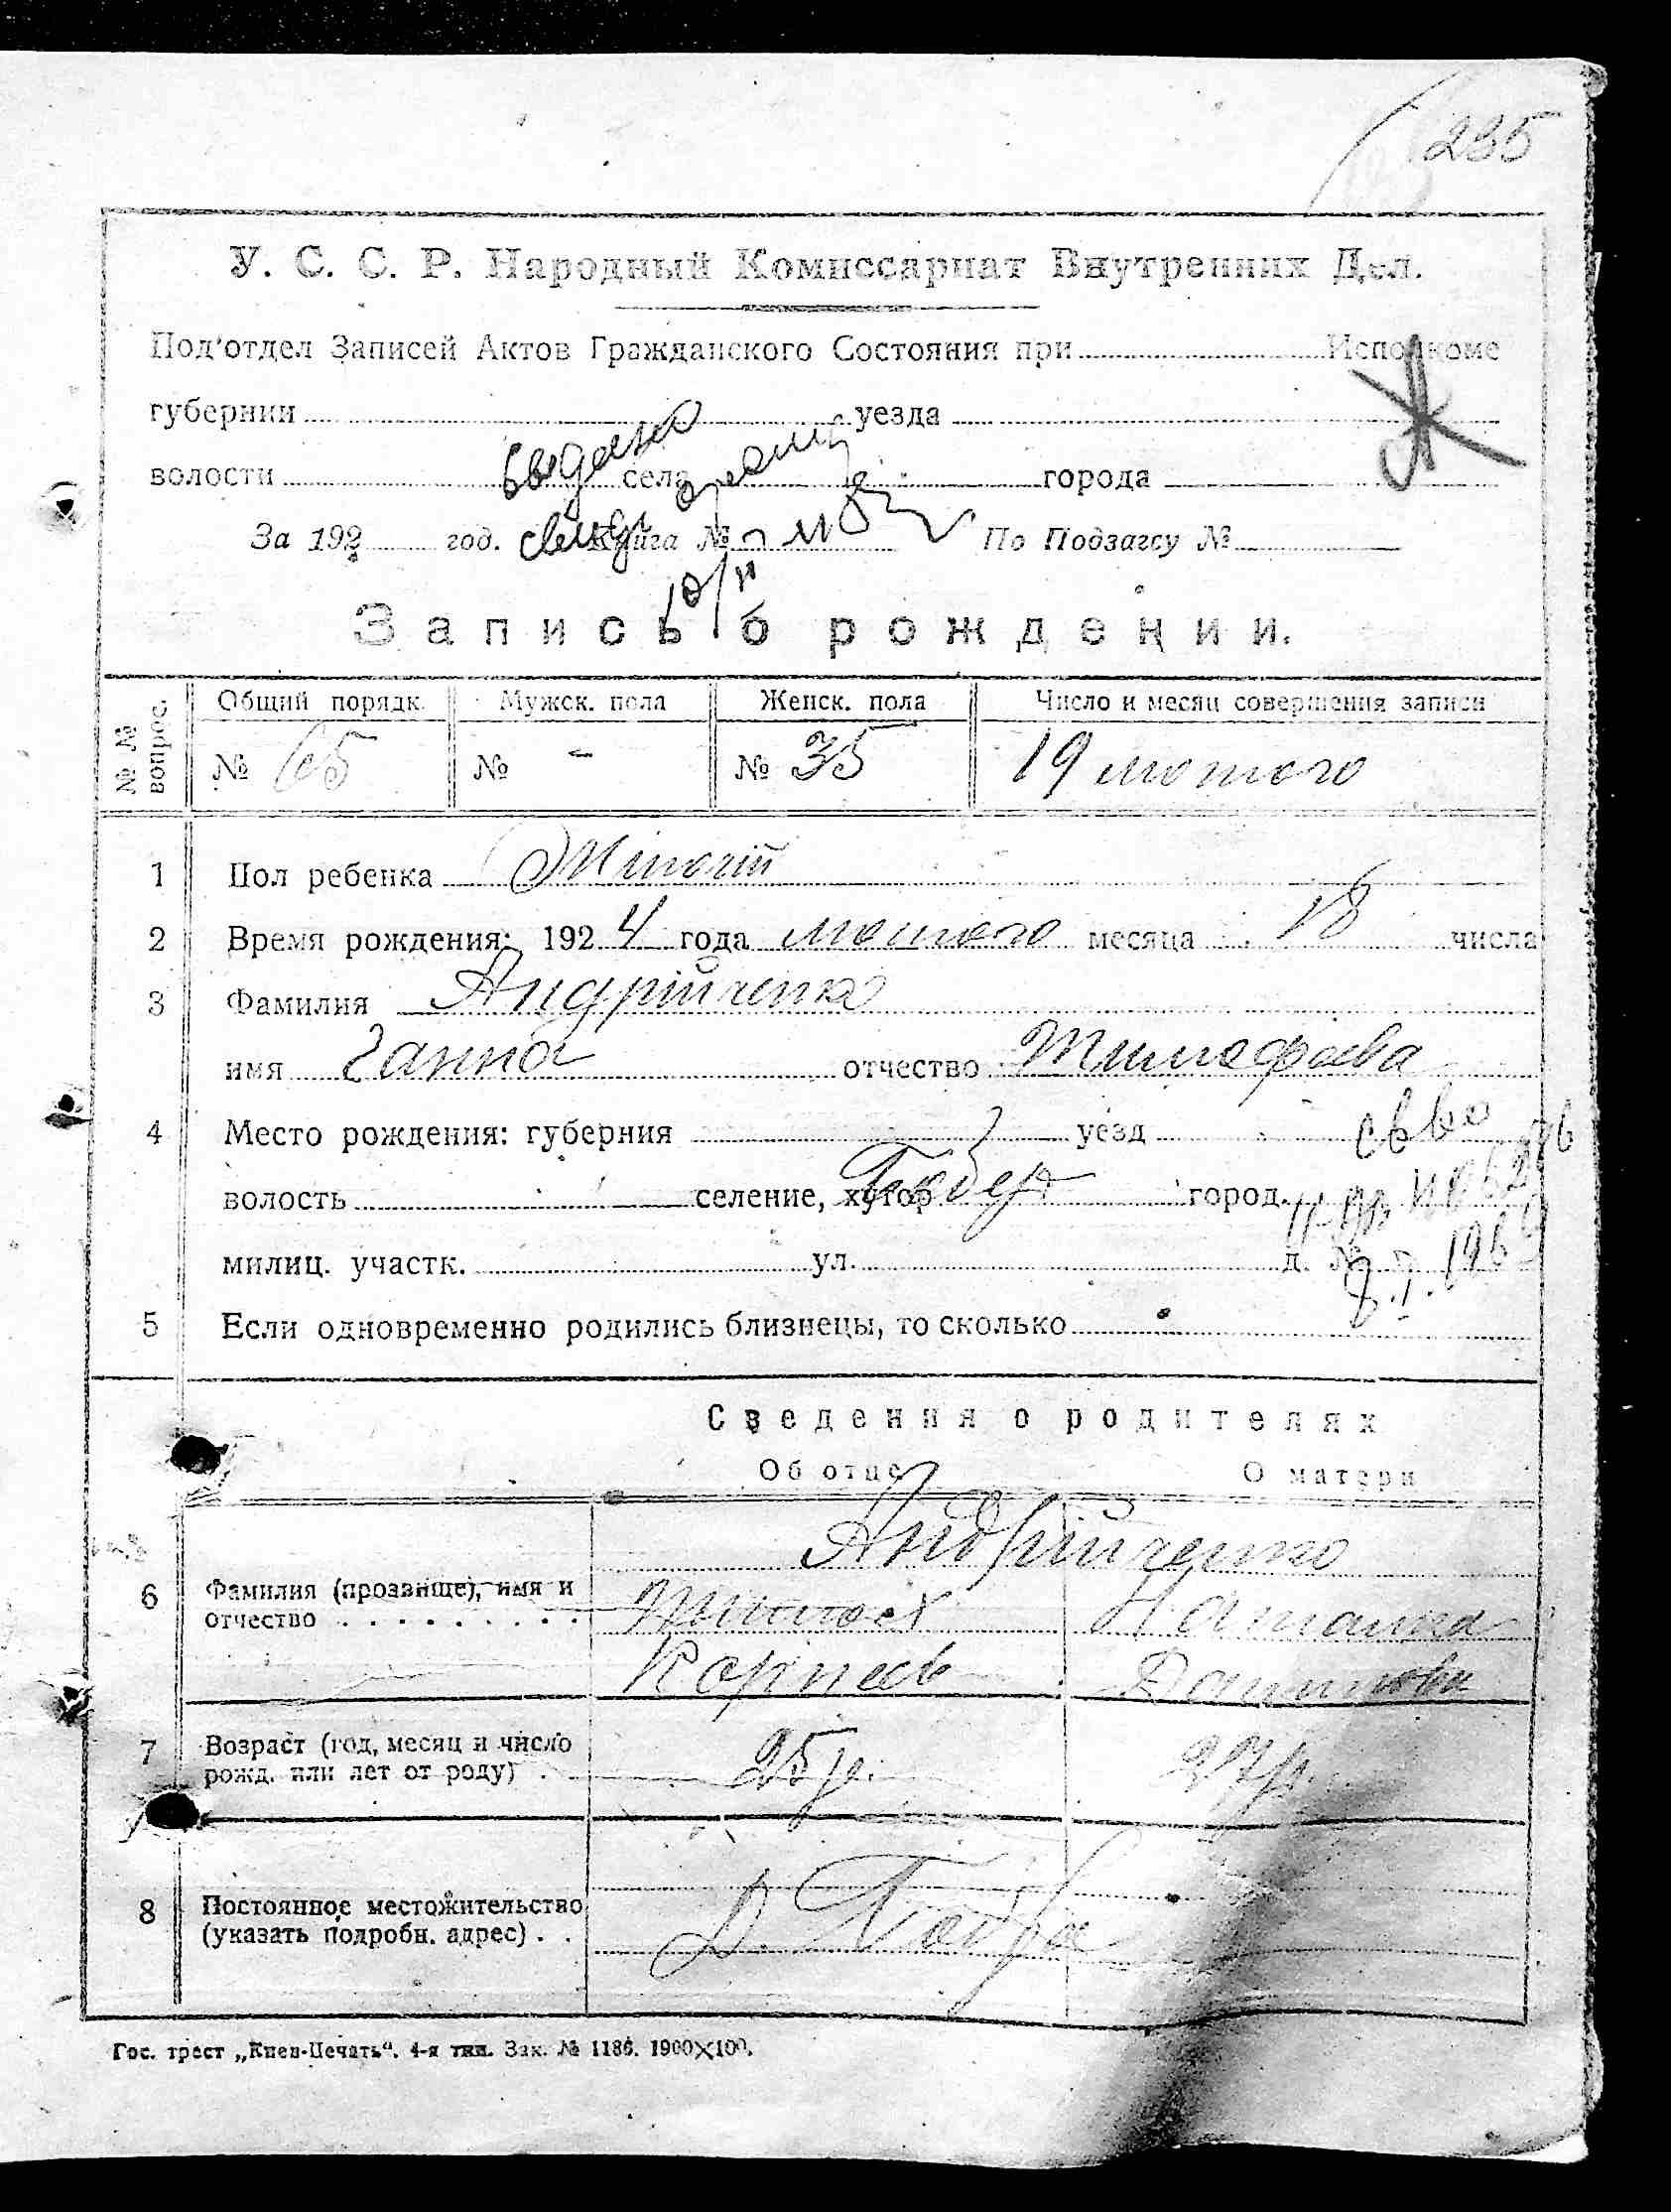 235
У. С. С. Р. Народный Комиссариат Внутренних Дел.
Под'отдел Записей Актов Гражданского Состояния при Исполкоме
губернии уезда
Ж
волости села города
выдано
За 192 год. Книга № По Подзагсу №
10/II
Запись о рождении.
№ № вопрос. Общий порядк. Мужск. пола Женск. пола Число и месяц совершения записи
№ 65 № - № 35 19 лютого
1 Пол ребенка Жіночій
2 Время рождения: 1924 года лютого месяца 18 числа
3 Фамилия Андрійченко
имя Ганна отчество Тимофіева
4 Место рождения: губерния уезд
св во
волость селение, хутор город
милиц. участк. ул. д. №
5 Если одновременно родились близнецы, то сколько
Сведения о родителях
Об отце О матери
Андрійченко
6 Фамилия (прозвище), имя и отчество . . . . . . . . . Тимофій Наталка
Корніев Данилова
7 Возраст (год, месяц и число рожд. или лет от роду) . 25 р. 27 р.
8 Постоянное местожительство (указать подробн. адрес) . .
Гос. трест „Киев-Печать". 4-я тип. Зак. № 1186. 1900×100.